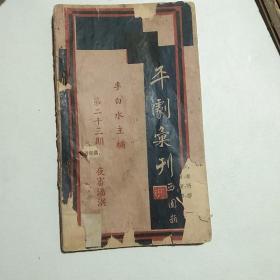 平劇彙刊
西園題
李白水主編
第二十三期
夜審潘洪